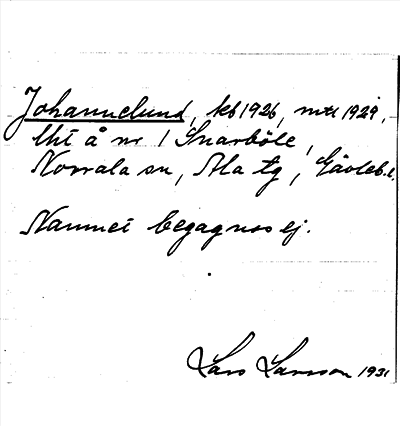 Johannelund, kb 1926, mtl 1929,
lht å nr 1 Snarböle,
Norrala sn, Ala tg, Gävleb. l.
Namnet begagnas ej.
Lars Larsson 1931